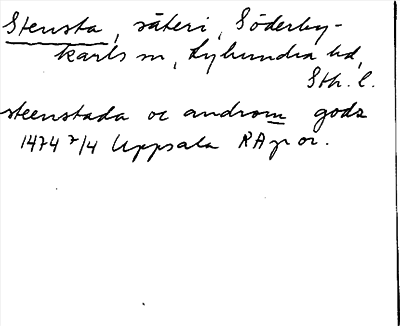 Stensta, säteri, Söderby-
karls sn, Lyhundra hd,
Sth. l.
steenstada oc androm godz
1474 7/4 Uppsala RA p or.